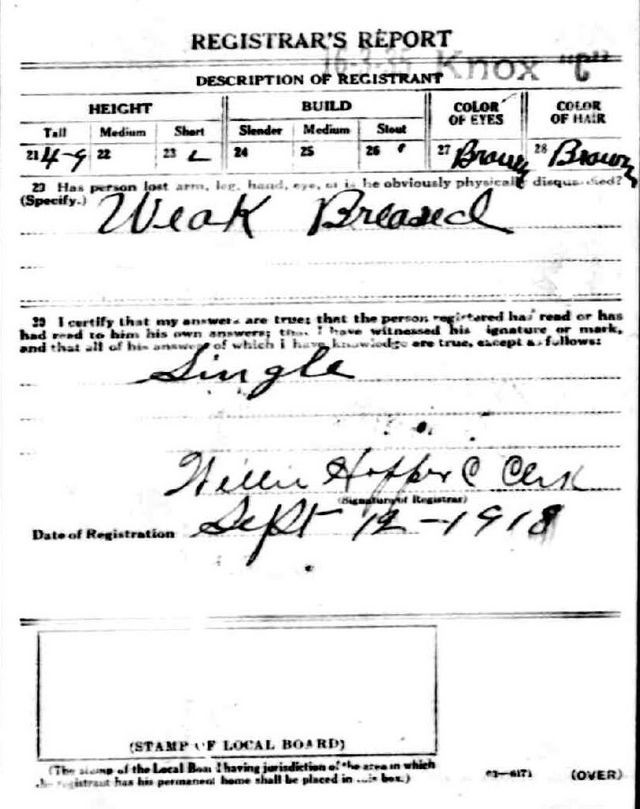 REGISTRAR'S REPORT
16-3-35 Knox "C"
DESCRIPTION OF REGISTRANT
HEIGHT BUILD COLOR OF EYES COLOR OF HAIR
Tall Medium Short Slender Medium Stout
21 4-9 22 23 24 25 26 27 Brown 28 Brown
29 Has person lost arm, leg, hand, eye, or is he obviously physically disqualified?
(Specify.) Weak Breased
30 I certify that my answers are true; that the person registered has read or has
had read to him his own answers; that I have witnessed his signature or mark,
and that all of his answers of which I have knowledge are true, except as follows:
Single
Hopper C Clerk
(Signature of Registrar)
Date of Registration Sept 12-1918
(STAMP OF LOCAL BOARD)
(The stamp of the Local Board having jurisdiction of the area in which
the registrant has his permanent home shall be placed in this box.)
(OVER)